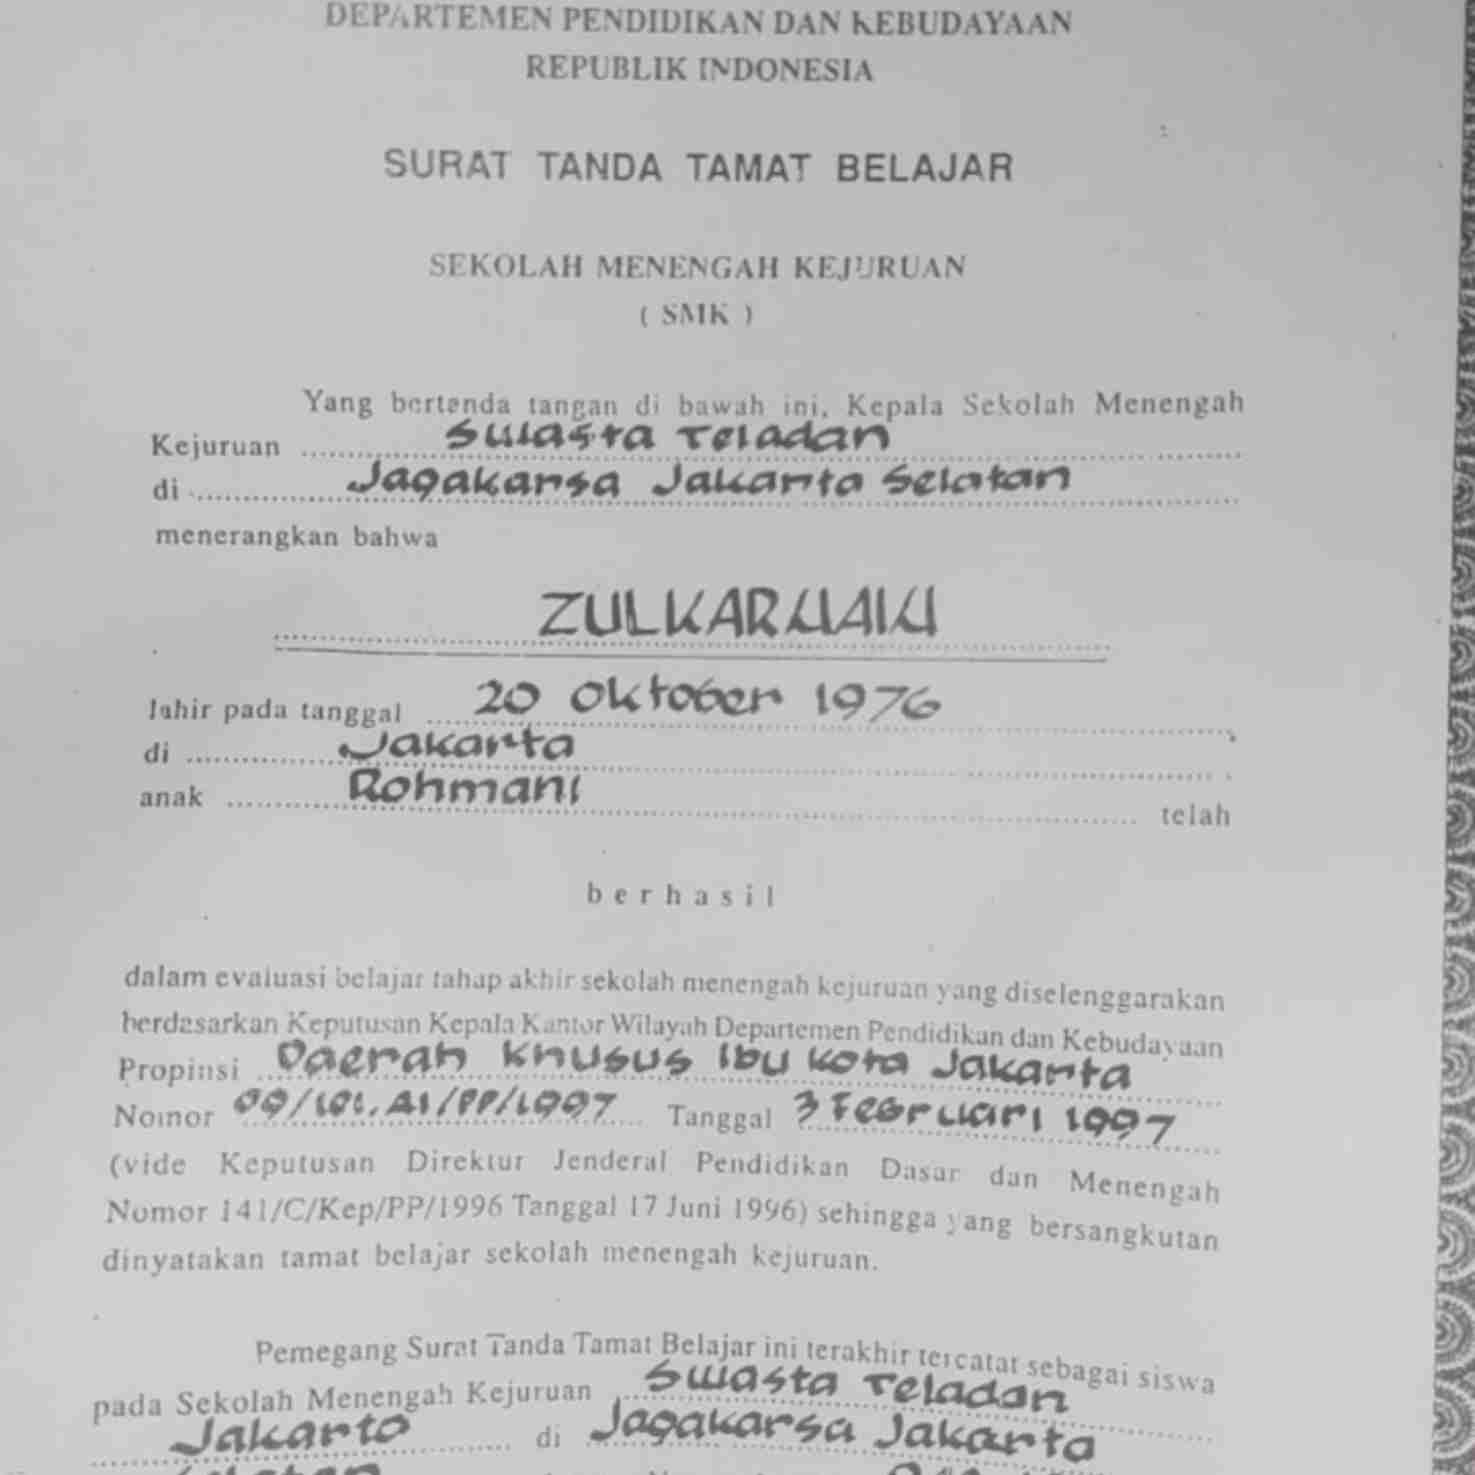 DEPARTEMEN PENDIDIKAN DAN KEBUDAYAAN
REPUBLIK INDONESIA
SURAT TANDA TAMAT BELAJAR
SEKOLAH MENENGAH KEJURUAN
( SMK )
Yang bertanda tangan di bawah ini, Kepala Sekolah Menengah
Kejuruan Swasta Teladan
di Jagakarsa Jakarta Selatan
menerangkan bahwa
ZULKARNAIN
lahir pada tanggal 20 Oktober 1976
di Jakarta
anak Rohmani telah
berhasil
dalam evaluasi belajar tahap akhir sekolah menengah kejuruan yang diselenggarakan
berdasarkan Keputusan Kepala Kantor Wilayah Departemen Pendidikan dan Kebudayaan
Propinsi Daerah Khusus Ibu Kota Jakarta
Nomor 09/101.A1/PP/1997 Tanggal 3 Februari 1997
(vide Keputusan Direktur Jenderal Pendidikan Dasar dan Menengah
Nomor 141/C/Kep/PP/1996 Tanggal 17 Juni 1996) sehingga yang bersangkutan
dinyatakan tamat belajar sekolah menengah kejuruan.
Pemegang Surat Tanda Tamat Belajar ini terakhir tercatat sebagai siswa
pada Sekolah Menengah Kejuruan Swasta Teladan
Jakarta di Jagakarsa Jakarta